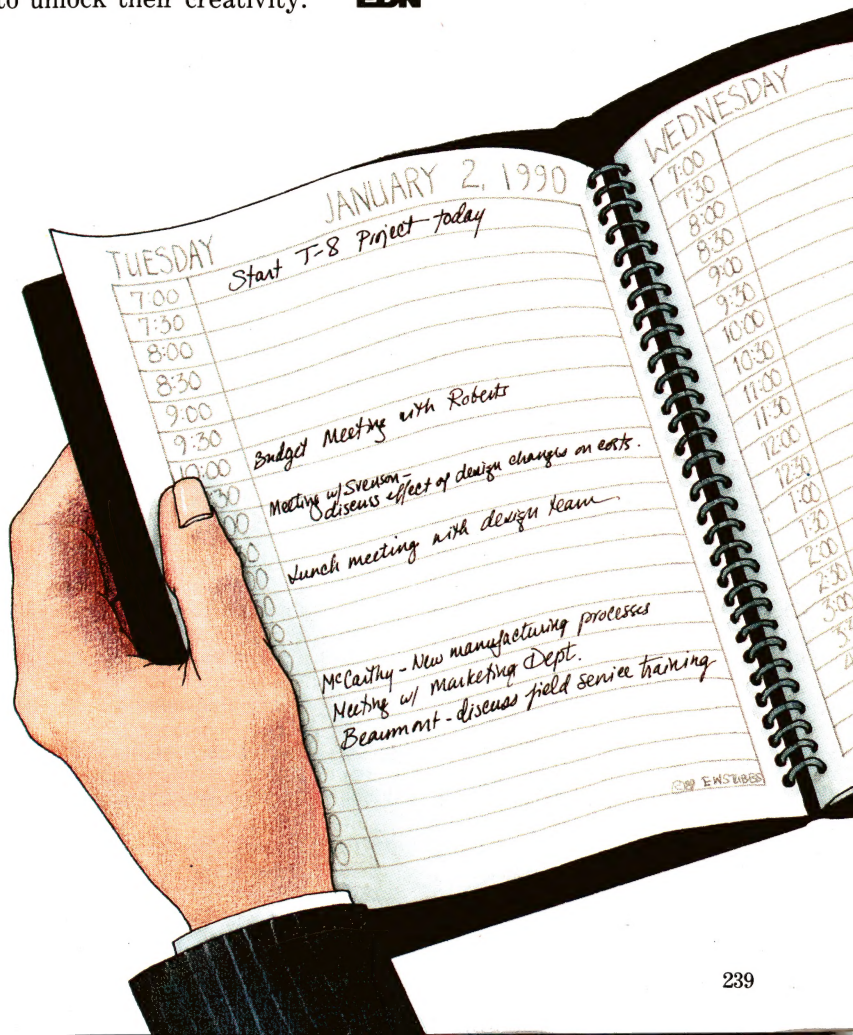 to unlock their creativity. EDN
JANUARY 2, 1990
TUESDAY
Start T-8 Project today
7:00
7:30
8:00
8:30
9:00
9:30
10:00
30
00
0
Budget Meeting with Roberts
Meeting w/ Svenson-
discuss effect of design changes on costs.
Lunch meeting with design team
McCarthy - New manufacturing processes
Meeting w/ Marketing Dept.
Beaumont - discuss field service training
WEDNESDAY
7:00
7:30
8:00
8:30
9:00
9:30
10:00
10:30
11:00
11:30
12:00
12:30
1:00
1:30
2:00
2:30
3:00
239